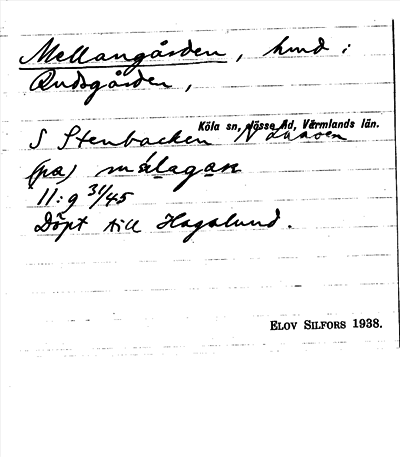 Mellangården, hmd i
Rudsgården,
Köla sn, Jösse hd, Värmlands län.
S Stenbacken N
(pa)
11:9 31/45
Döpt till Hagalund.
ELOV SILFORS 1938.